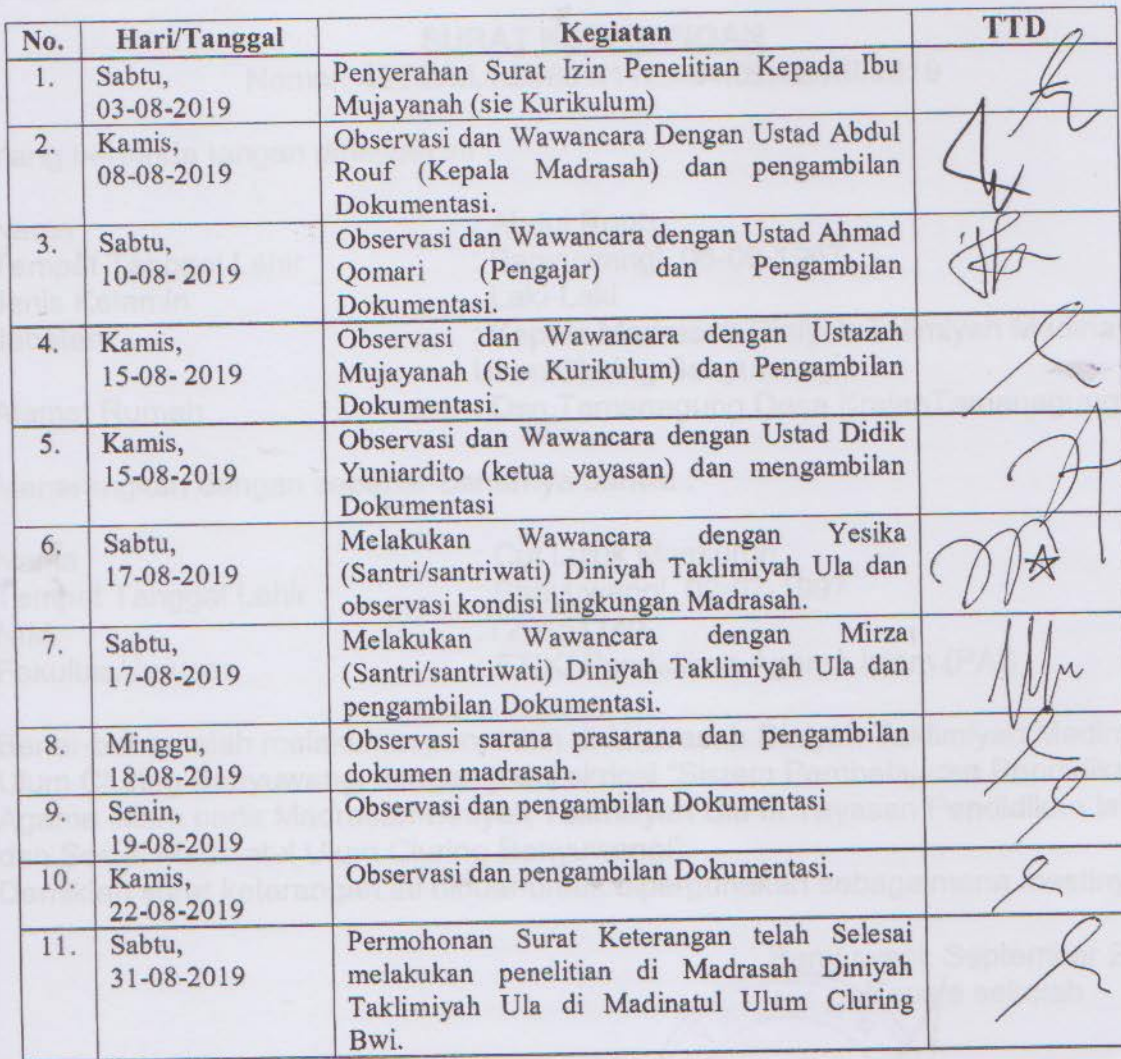 No. Hari/Tanggal Kegiatan TTD
1. Sabtu, Penyerahan Surat Izin Penelitian Kepada Ibu
03-08-2019 Mujayanah (sie Kurikulum)
2. Kamis, Observasi dan Wawancara Dengan Ustad Abdul
08-08-2019 Rouf (Kepala Madrasah) dan pengambilan
Dokumentasi.
3. Sabtu, Observasi dan Wawancara dengan Ustad Ahmad
10-08-2019 Qomari (Pengajar) dan Pengambilan
Dokumentasi.
4. Kamis, Observasi dan Wawancara dengan Ustazah
15-08- 2019 Mujayanah (Sie Kurikulum) dan Pengambilan
Dokumentasi.
5. Kamis, Observasi dan Wawancara dengan Ustad Didik
15-08-2019 Yuniardito (ketua yayasan) dan mengambilan
Dokumentasi
6. Sabtu, Melakukan Wawancara dengan Yesika
17-08-2019 (Santri/santriwati) Diniyah Taklimiyah Ula dan
observasi kondisi lingkungan Madrasah.
7. Sabtu, Melakukan Wawancara dengan Mirza
17-08-2019 (Santri/santriwati) Diniyah Taklimiyah Ula dan
pengambilan Dokumentasi.
8. Minggu, Observasi sarana prasarana dan pengambilan
18-08-2019 dokumen madrasah.
9. Senin, Observasi dan pengambilan Dokumentasi
19-08-2019
10. Kamis, Observasi dan pengambilan Dokumentasi.
22-08-2019
11. Sabtu, Permohonan Surat Keterangan telah Selesai
31-08-2019 melakukan penelitian di Madrasah Diniyah
Taklimiyah Ula di Madinatul Ulum Cluring
Bwi.